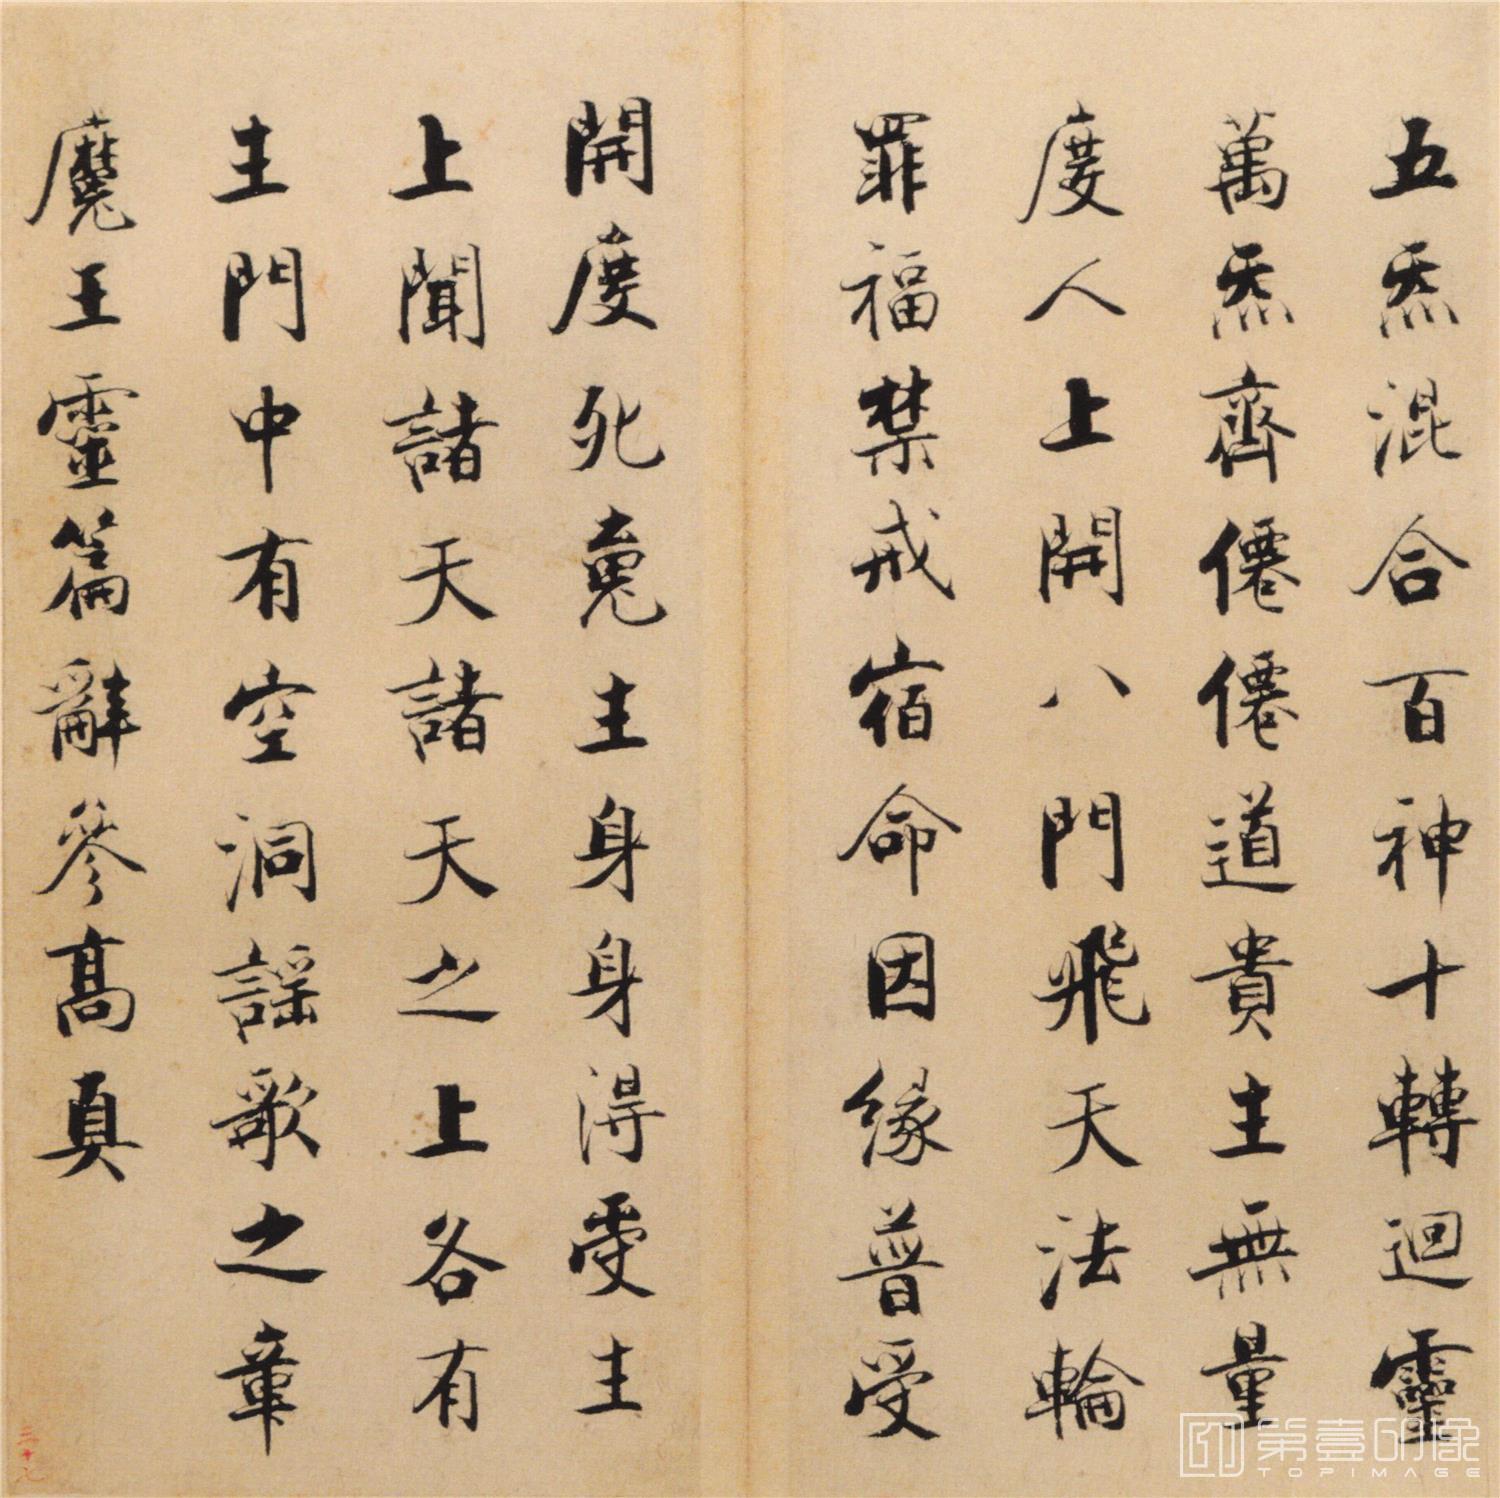 五炁混合百神十轉迴靈
萬炁齊僊僊道貴生無量
度人上開八門飛天法輪
罪福禁戒宿命因緣普受
開度死魂生身身得受生
上聞諸天諸天之上各有
生門中有空洞謠歌之章
魔王靈篇辭參高真
第壹印象
TOPIMAGE